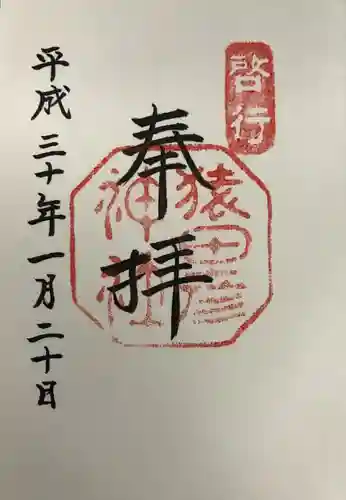 啓行
奉拝
猿田
神社
平成三十年一月二十日